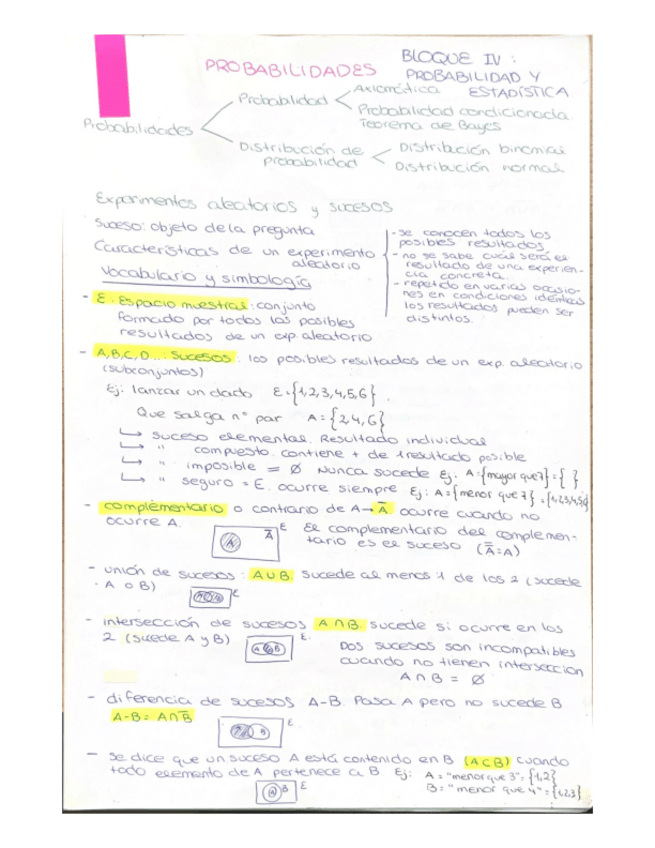 PROBABILIDADES
BLOQUE IV :
PROBABILIDAD Y
ESTADÍSTICA
Probabilidades
Probabilidad
Axiomática
Probabilidad condicionada
Teorema de Bayes
Distribución de
probabilidad
Distribución binomial
Distribución normal
Experimentos aleatorios y sucesos
Suceso: objeto de la pregunta
Características de un experimento
aleatorio
- se conocen todos los
posibles resultados
- no se sabe cuál será el
resultado de una experien-
cia concreta.
- repetido en varias ocasio-
nes en condiciones idénticas
los resultados pueden ser
distintos.
Vocabulario y simbología
- E. Espacio muestral: conjunto
formado por todos los posibles
resultados de un exp. aleatorio
- A,B,C,D...: Sucesos: los posibles resultados de un exp. aleatorio
(subconjuntos)
Ej: lanzar un dado E={1,2,3,4,5,6}.
Que salga nº par A={2,4,6}
↳ suceso elemental. Resultado individual
↳ " compuesto. contiene + de 1 resultado posible
↳ " imposible = Ø Nunca sucede Ej: A={mayor que 7}={ }
↳ " seguro = E. ocurre siempre Ej: A={menor que 7}={1,2,3,4,5,6}
- complementario o contrario de A→ A̅ ocurre cuando no
ocurre A.
A A̅ E
El complementario del complemen-
tario es el suceso (A̿=A)
- unión de sucesos: A∪B. Sucede al menos 1 de los 2 (sucede
A o B)
E
- intersección de sucesos A∩B. sucede si ocurre en los
2 (sucede A y B)
A B E
Dos sucesos son incompatibles
cuando no tienen interseccion
A∩B = Ø
- diferencia de sucesos A-B. Pasa A pero no sucede B
A-B= A∩B̅
B E
- se dice que un suceso A está contenido en B (A⊂B) cuando
todo elemento de A pertenece a B Ej: A = "menor que 3"={1,2}
B= "menor que 4"={1,2,3}
A B E